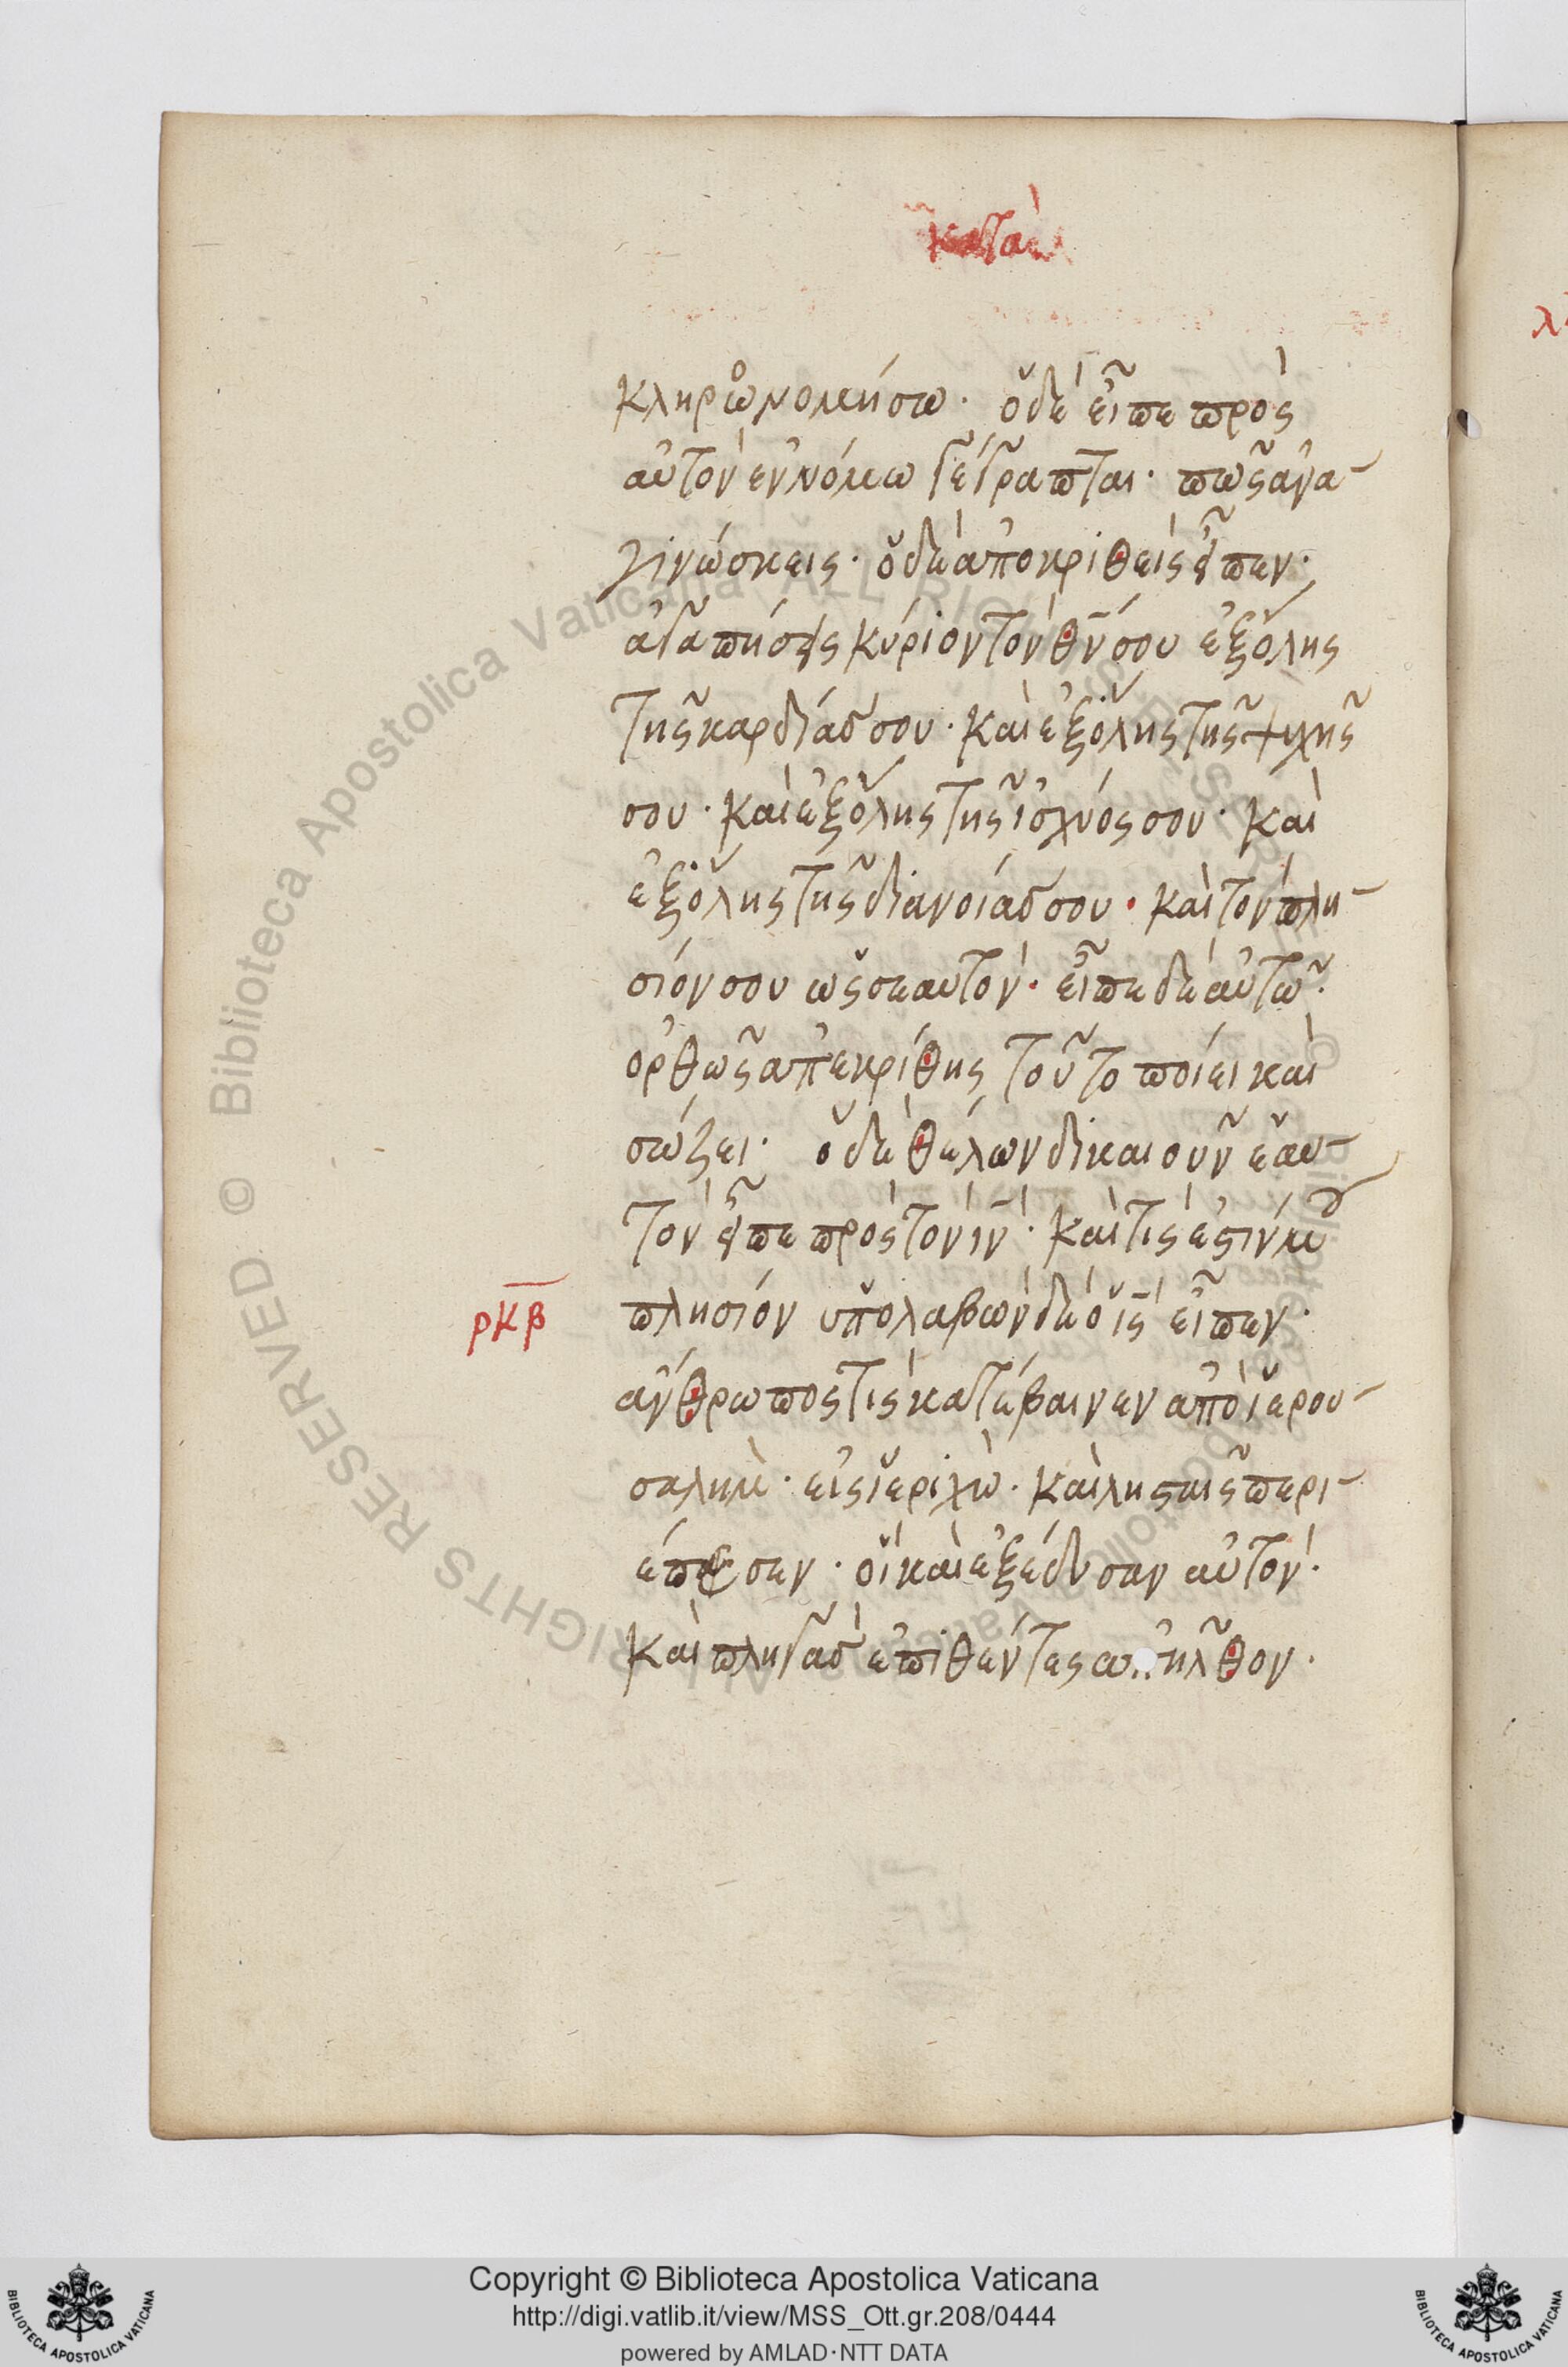 κατὰ
κληρωνομήσω· ὁ δὲ εἶπε πρὸς
αὐτὸν ἐν νόμω γέγραπται· πῶς ἀνα-
γινώσκεις· ὁ δὲ ἀποκριθεὶς εἶπεν·
ἀγαπήσεις κύριον τὸν θν̄ σου ἐξ ὅλης
τῆς καρδίας σου· καὶ ἐξ ὅλης τῆς ψυχῆς
σου· καὶ ἐξ ὅλης τῆς ἰσχύος σου· καὶ
ἐξ ὅλης τῆς διανοίας σου· καὶ τὸν πλη-
σίον σου ὡς σεαυτόν· εἶπε δὲ αὐτῶ·
ὀρθῶς ἀπεκρίθης τοῦτο ποίει καὶ
σώζει· ὁ δὲ θέλων δικαιοῦν ἑαυ-
τὸν εἶπε πρὸς τὸν ιν̄· καὶ τίς ἐστίν μου
ρκβ πλησίον ὑπολαβὼν δὲ ὁ ις̄ εἶπεν·
ἄνθρωπος τὶς κατέβαινεν ἀπὸ ἱερου-
σαλημ· εἰς ἱεριχὼ· καὶ λησταῖς περι-
έπεσεν· οἳ καὶ ἐξέδυσαν αὐτὸν·
καὶ πληγὰς ἐπιθέντες ἀπῆλθον·
Copyright © Biblioteca Apostolica Vaticana
http://digi.vatlib.it/view/MSS_Ott.gr.208/0444
powered by AMLAD·NTT DATA
BIBLIOTECA APOSTOLICA VATICANA
BIBLIOTECA APOSTOLICA VATICANA